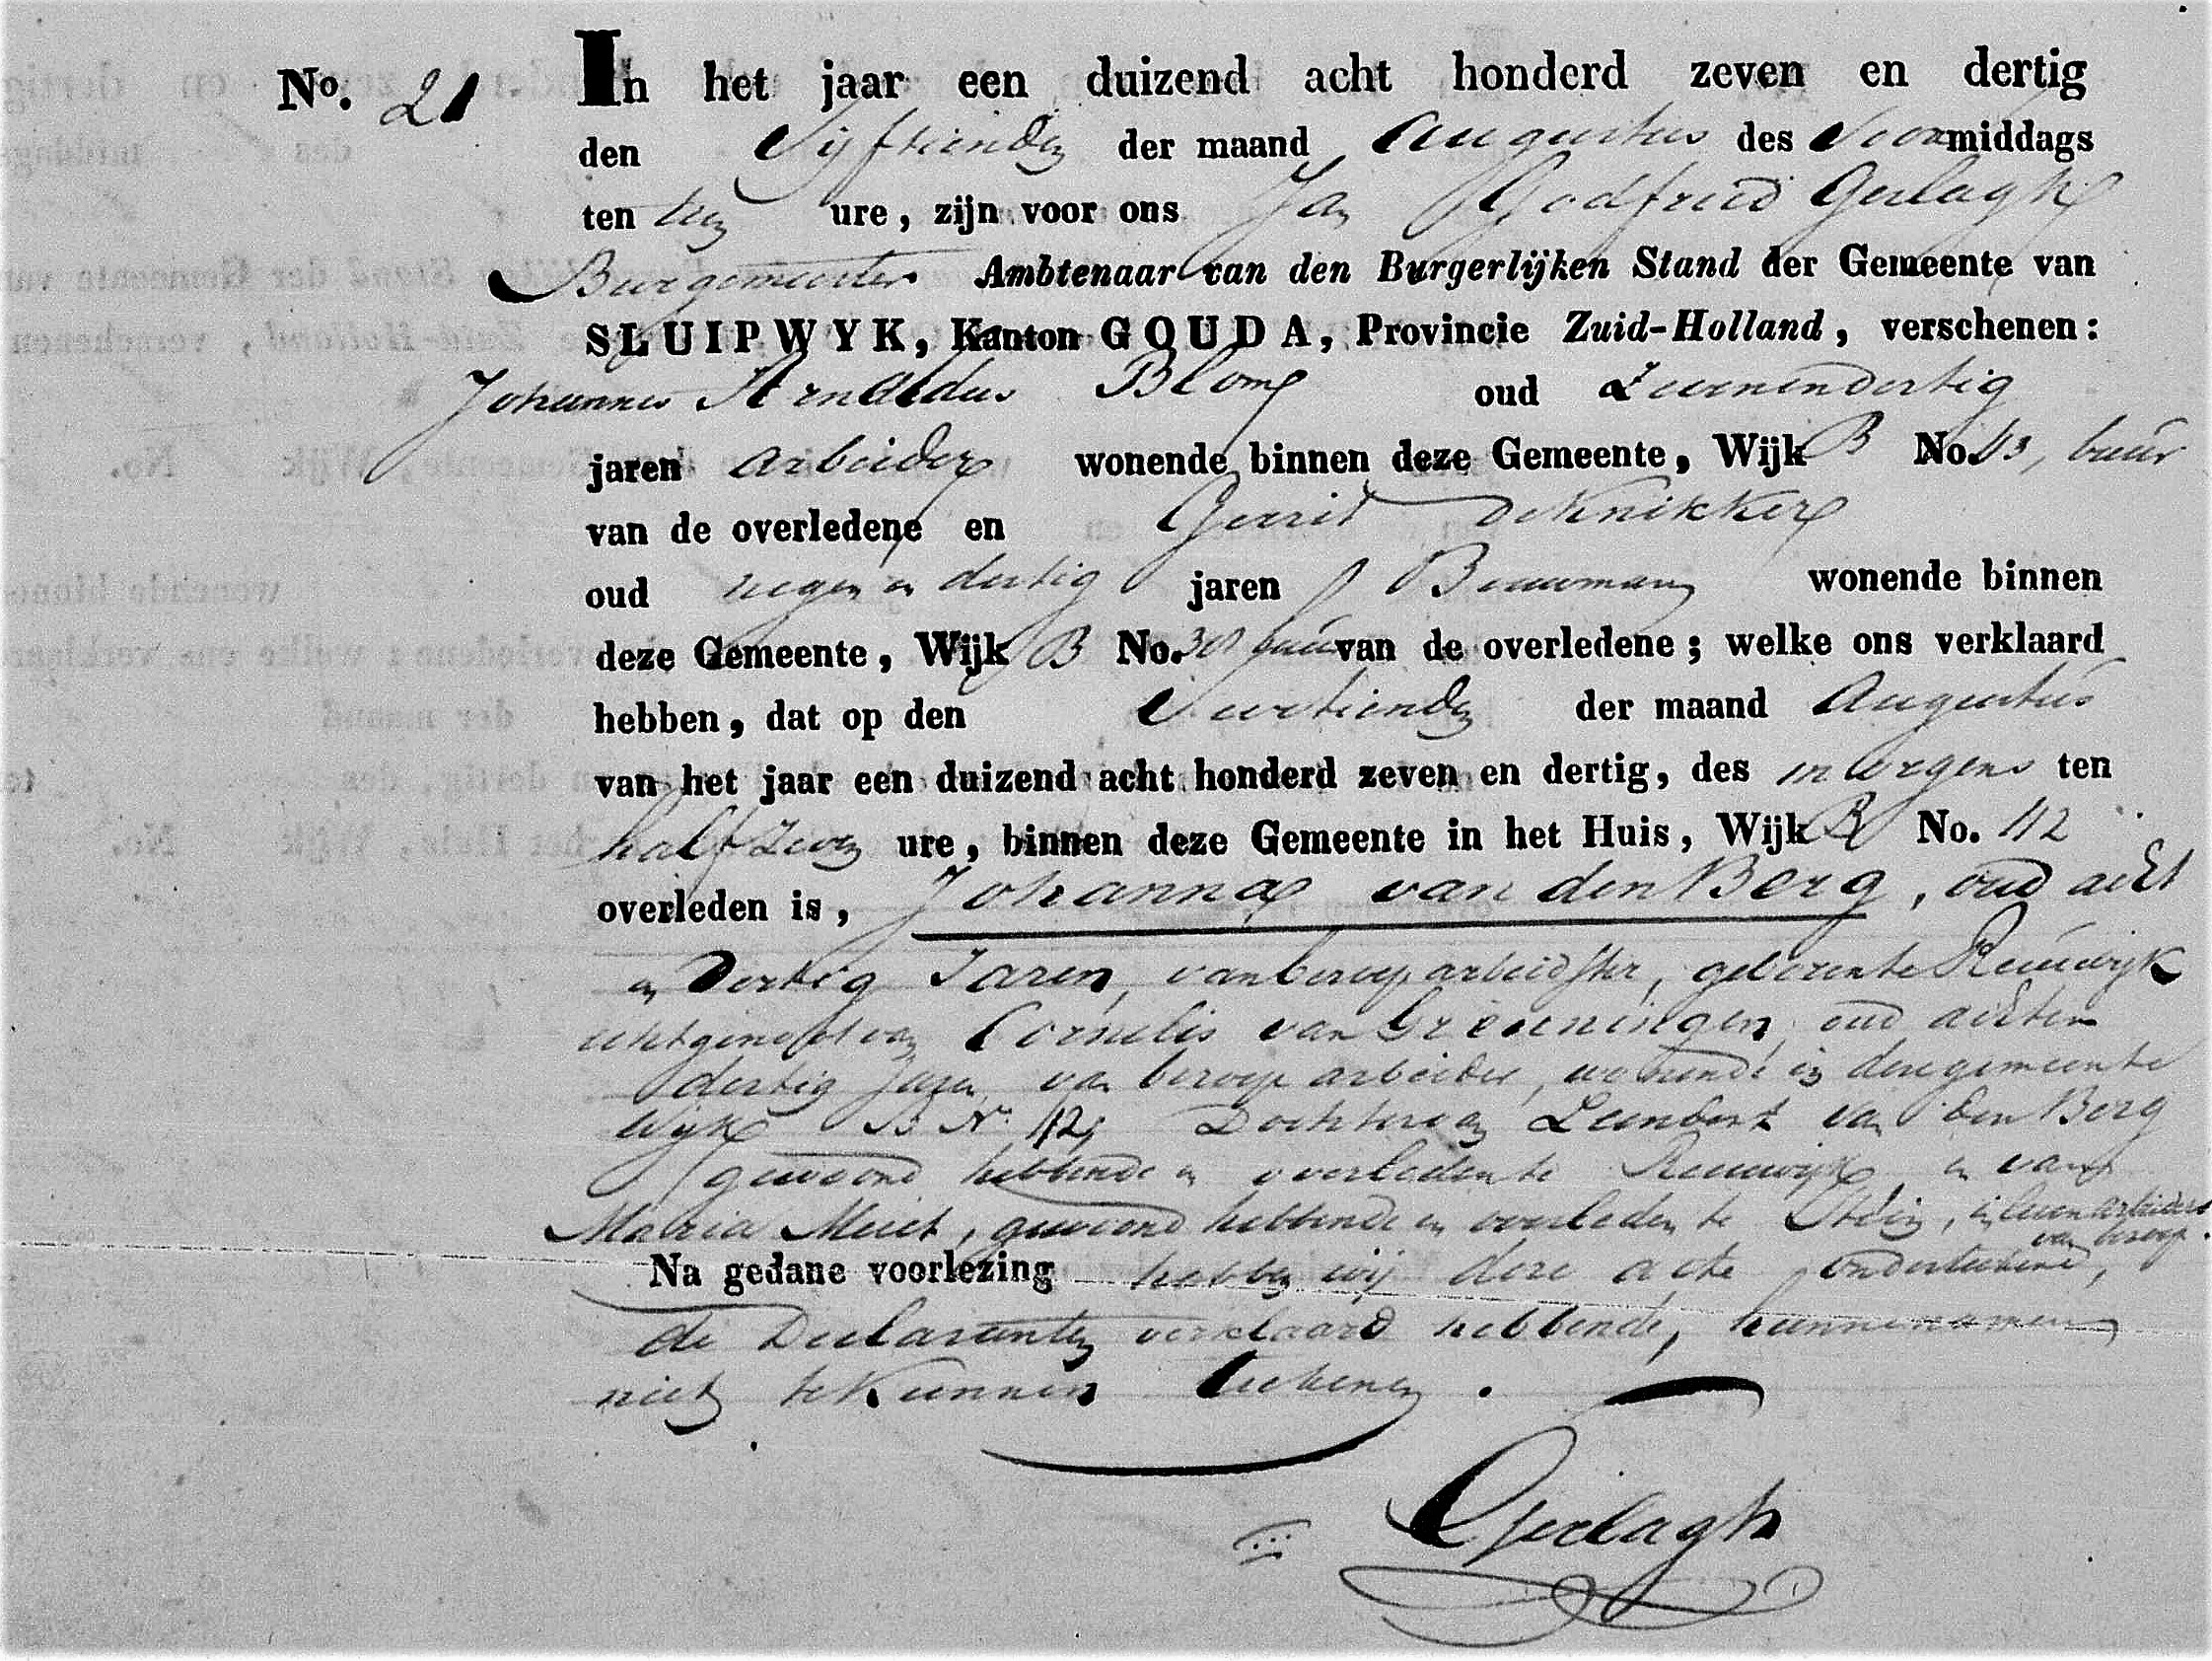 No. 21
In het jaar een duizend acht honderd zeven en dertig
den Vijftienden der maand Augustus des Voormiddags
ten tien ure, zijn voor ons Jan Godfried Gerlagh
Burgemeester Ambtenaar van den Burgerlijken Stand der Gemeente van
SLUIPWYK, Kanton GOUDA, Provincie Zuid-Holland, verschenen:
Johannes Arnoldus Blom oud
jaren arbeider wonende binnen deze Gemeente, Wijk B No. 43, buur
van de overledene en Gerrit de Knikker
oud negen en dertig jaren Bouwman wonende binnen
deze Gemeente, Wijk B No. buur van de overledene; welke ons verklaard
hebben, dat op den Veertienden der maand Augustus
van het jaar een duizend acht honderd zeven en dertig, des morgens ten
half zeven ure, binnen deze Gemeente in het Huis, Wijk B No. 42
overleden is, Johanna van den Berg, oud acht
en Dertig Jaren, van beroep arbeidster, geboren te Reeuwijk
echtgenoot van Cornelis van Greuningen, oud acht en
dertig Jaren van beroep arbeider, wonende in deze gemeente
Wijk B No. 42, Dochter van Leendert van den Berg
gewoond hebbende en overleden te Reeuwijk, en van
Maria Muet, gewoond hebbende en overleden te Stein, in leven arbeiders
van beroep.
Na gedane voorlezing hebben wij deze acte onderteekend,
de Declaranten verklaard hebbende, hunne namen
niet te kunnen teekenen.
Gerlagh